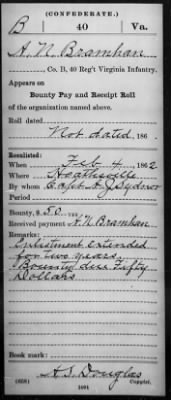 (CONFEDERATE.)
B 40 Va.
A. N. Bramhan
, Co. B, 40 Reg't Virginia Infantry.
Appears on
Bounty Pay and Receipt Roll
of the organization named above.
Roll dated
Not dated, 186
Enlisted:
When Feb 4, 1862
Where Heathsville
By whom Capt A J Sydnor
Period
Bounty, $50
Received payment A. N. Bramhan
Remarks:
Enlistment extended
for two years.
Bounty due Fifty
Dollars
Book mark:
A. S. Douglas
(658) Copyist.